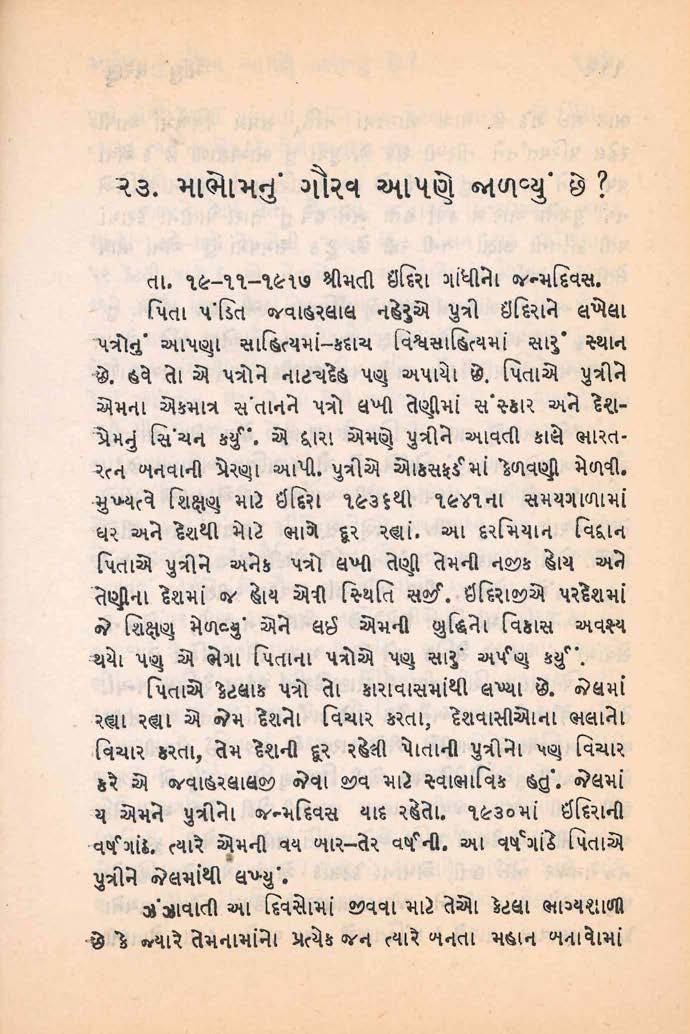 ૨૩. માભોમનું ગૌરવ આપણે જાળવ્યું છે ?
તા. ૧૯–૧૧–૧૯૧૭ શ્રીમતી ઇંદિરા ગાંધીનો જન્મદિવસ.
પિતા પંડિત જવાહરલાલ નહેરુએ પુત્રી ઇંદિરાને લખેલા
પત્રોનું આપણા સાહિત્યમાં–કદાચ વિશ્વસાહિત્યમાં સારું સ્થાન
છે. હવે તો એ પત્રોને નાટ્યદેહ પણ અપાયો છે. પિતાએ પુત્રીને
એમના એકમાત્ર સંતાનને પત્રો લખી તેણીમાં સંસ્કાર અને દેશ-
પ્રેમનું સિંચન કર્યું. એ દ્વારા એમણે પુત્રીને આવતી કાલે ભારત-
રત્ન બનવાની પ્રેરણા આપી. પુત્રીએ ઓકસફર્ડમાં કેળવણી મેળવી.
મુખ્યત્વે શિક્ષણ માટે ઇંદિરા ૧૯૩૬થી ૧૯૪૧ના સમયગાળામાં
ઘર અને દેશથી મોટે ભાગે દૂર રહ્યાં. આ દરમિયાન વિદ્વાન
પિતાએ પુત્રીને અનેક પત્રો લખી તેણી તેમની નજીક હોય અને
તેણીના દેશમાં જ હોય એવી સ્થિતિ સર્જી. ઇંદિરાજીએ પરદેશમાં
જે શિક્ષણ મેળવ્યું એને લઈ એમની બુદ્ધિનો વિકાસ અવશ્ય
થયો પણ એ ભેગા પિતાના પત્રોએ પણ સારું અર્પણ કર્યું.
પિતાએ કેટલાક પત્રો તો કારાવાસમાંથી લખ્યા છે. જેલમાં
રહ્યા રહ્યા એ જેમ દેશનો વિચાર કરતા, દેશવાસીઓના ભલાનો
વિચાર કરતા, તેમ દેશની દૂર રહેલી પોતાની પુત્રીનો પણ વિચાર
કરે એ જવાહરલાલજી જેવા જીવ માટે સ્વાભાવિક હતું. જેલમાં
ય એમને પુત્રીનો જન્મદિવસ યાદ રહેતો. ૧૯૩૦માં ઇંદિરાની
વર્ષગાંઠ. ત્યારે એમની વય બાર–તેર વર્ષની. આ વર્ષગાંઠે પિતાએ
પુત્રીને જેલમાંથી લખ્યું.
ઝંઝાવાતી આ દિવસોમાં જીવવા માટે તેઓ કેટલા ભાગ્યશાળી
છે કે જ્યારે તેમનામાંનો પ્રત્યેક જન ત્યારે બનતા મહાન બનાવોમાં